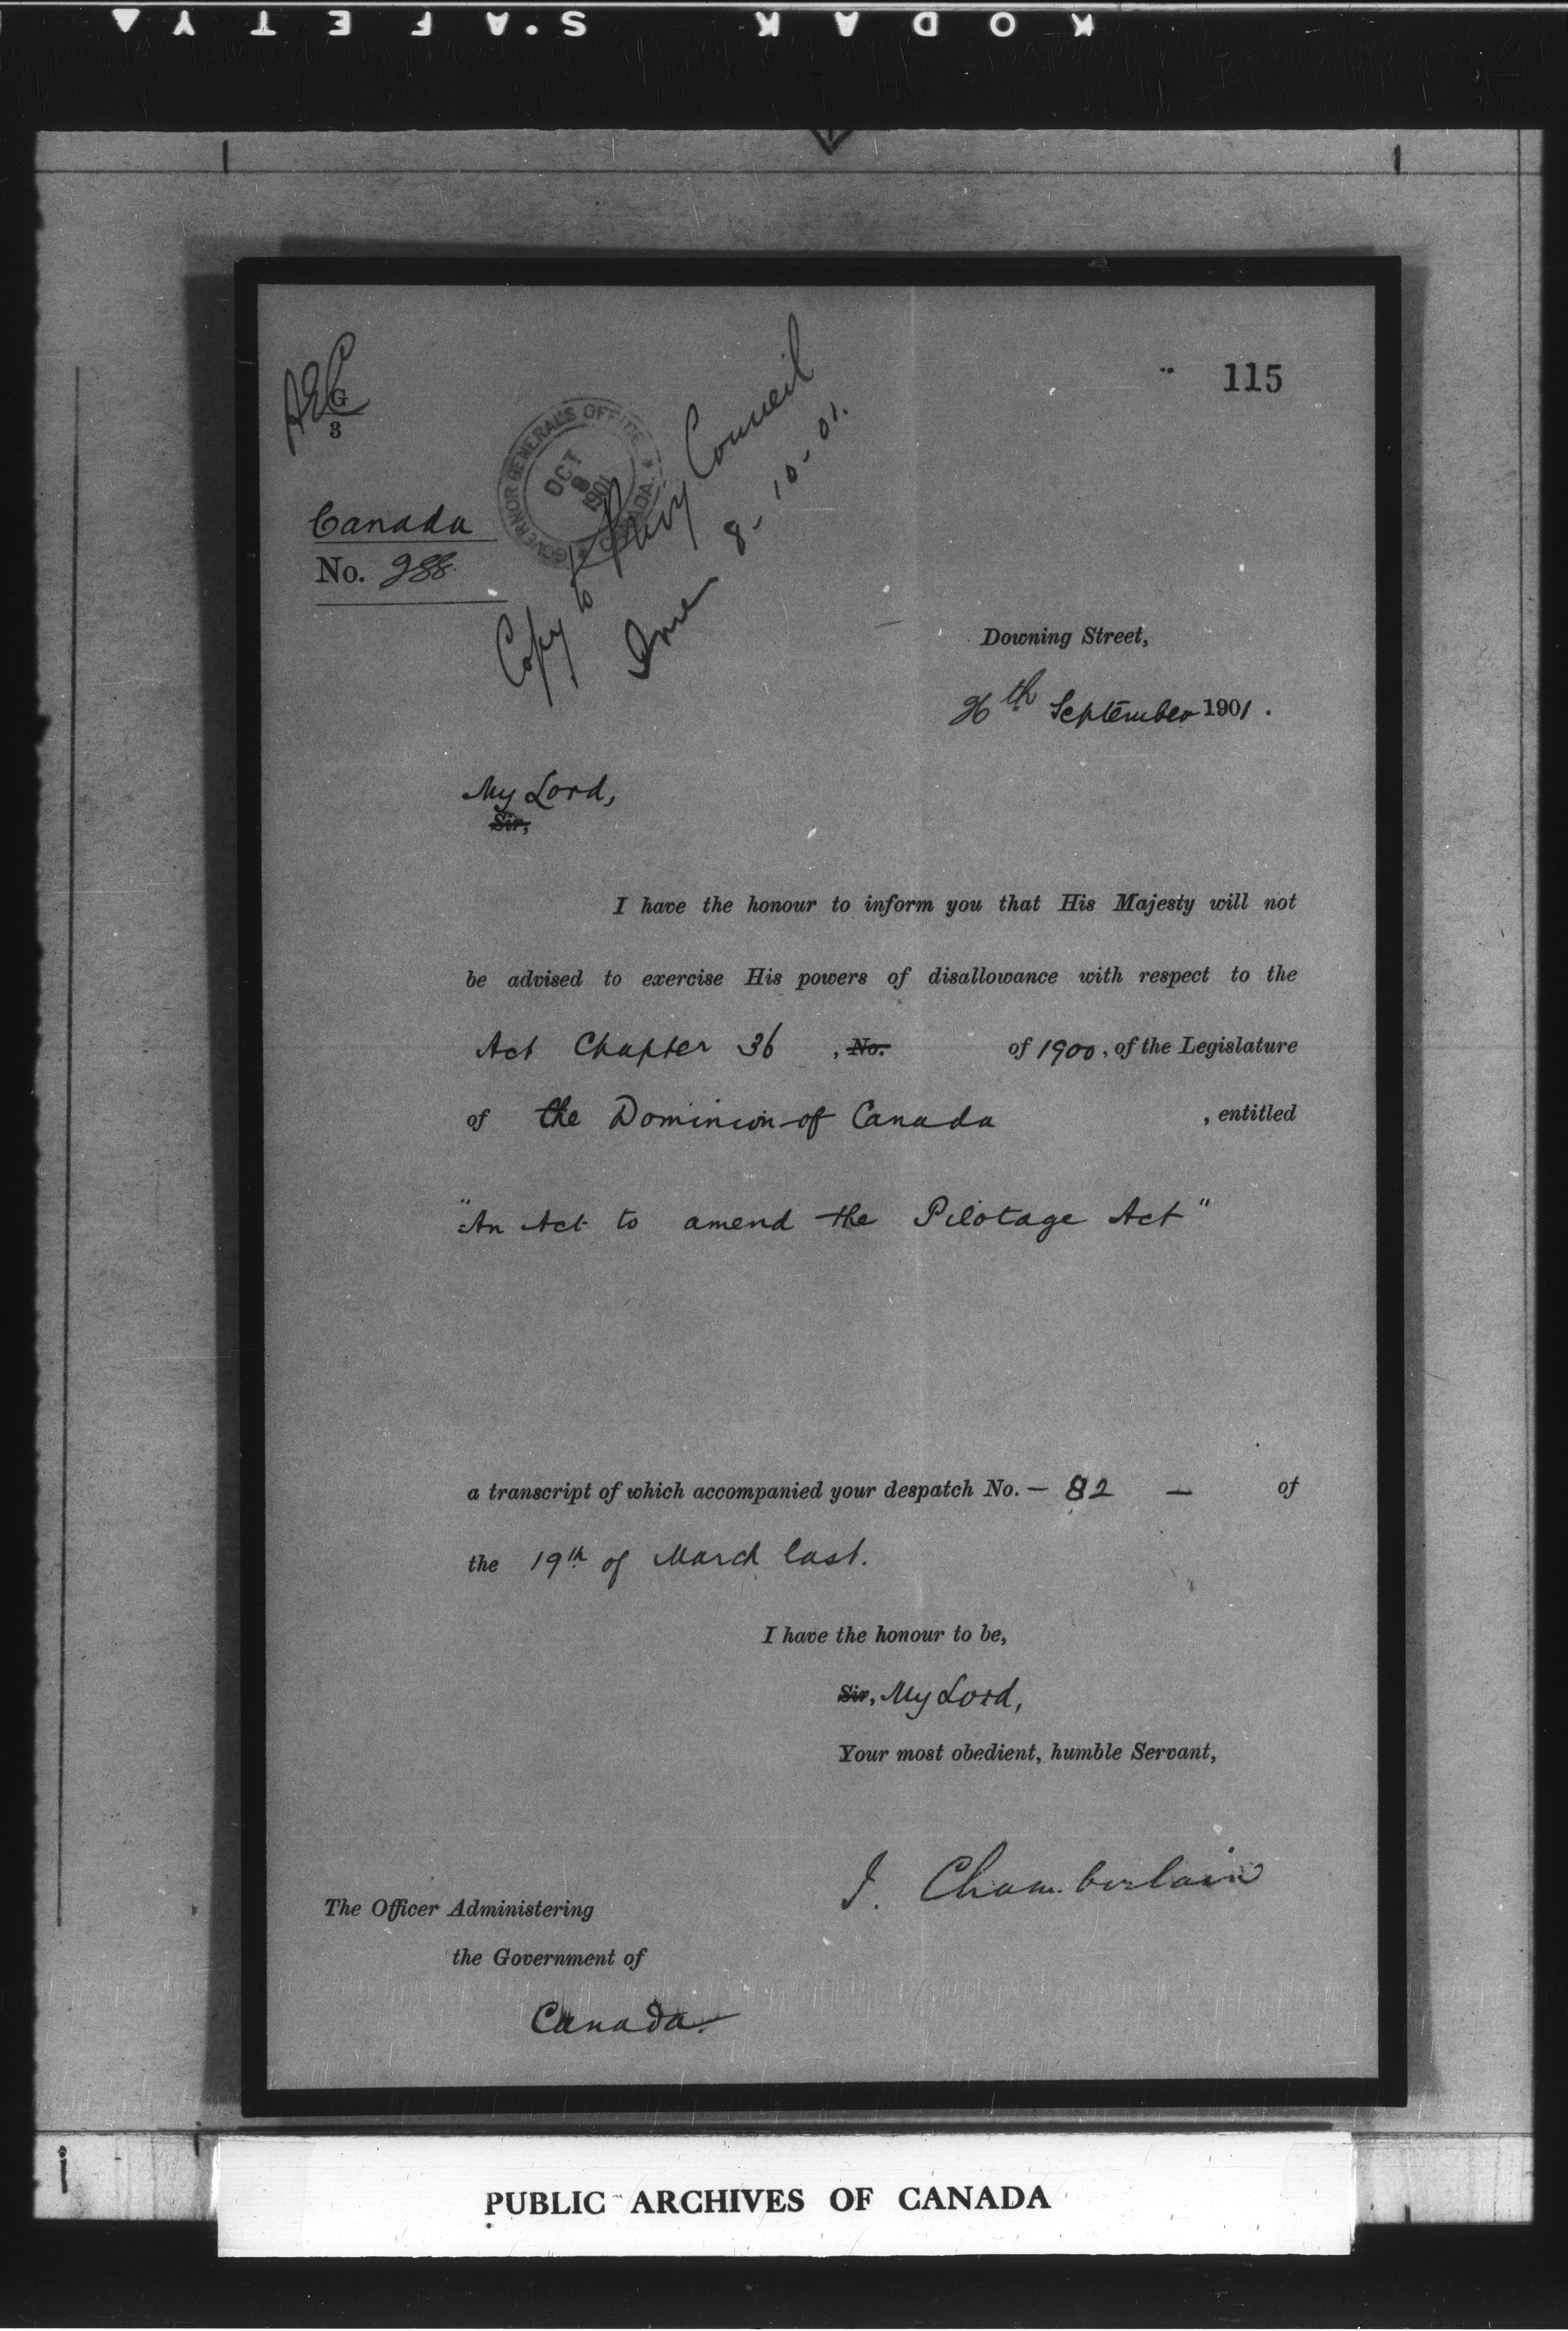 KODAK S.AFETY
115
G
3
GOVERNOR GENERAL'S OFFICE
OCT
8
1901
CANADA
Copy to Privy Council
8-10-01.
Canada
No. 288.
Downing Street,
26th September 1901.
My Lord,
Sir,
I have the honour to inform you that His Majesty will not
be advised to exercise His powers of disallowance with respect to the
Act Chapter 36 , No. of 1900, of the Legislature
of the Dominion of Canada , entitled
"An Act to amend the Pilotage Act"
a transcript of which accompanied your despatch No. — 82 — of
the 19th of March last.
I have the honour to be,
Sir, My Lord,
Your most obedient, humble Servant,
J. Chamberlain
The Officer Administering
the Government of
Canada.
PUBLIC ARCHIVES OF CANADA